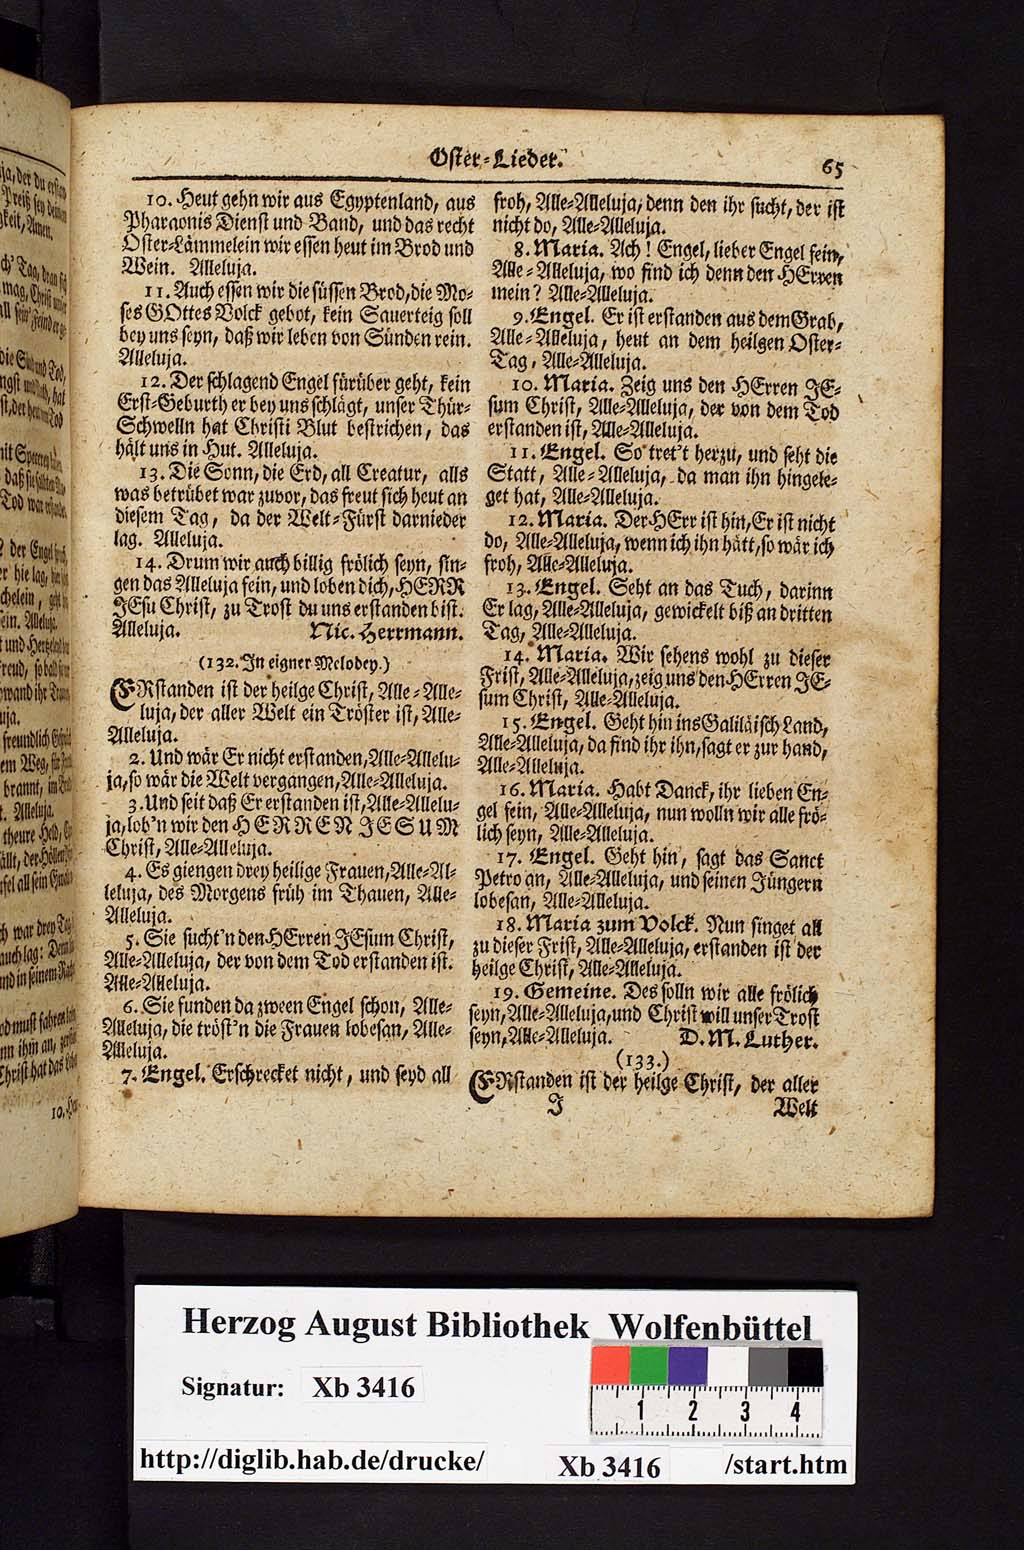 Oster-Lieder.
65
10. Heut gehn wir aus Egyptenland, aus
Pharaonis Dienst und Band, und das recht
Oster-Lämmelein wir essen heut im Brod und
Wein. Alleluja.
11. Auch essen wir die süssen Brod, die Mo-
ses GOttes Volck gebot, kein Sauerteig soll
bey uns seyn, daß wir leben von Sünden rein.
Alleluja.
12. Der schlagend Engel fürüber geht, kein
Erst-Geburth er bey uns schlägt, unser Thür-
Schwelln hat Christi Blut bestrichen, das
hält uns in Hut. Alleluja.
13. Die Sonn, die Erd, all Creatur, alls
was betrübet war zuvor, das freut sich heut an
diesem Tag, da der Welt-Fürst darnieder
lag. Alleluja.
14. Drum wir auch billig frölich seyn, sin-
gen das Alleluja fein, und loben dich, HERR
JEsu Christ, zu Trost du uns erstanden bist.
Alleluja. Nic. Herrmann.
(132. In eigner Melodey.)
ERstanden ist der heilge Christ, Alle-Alle-
luja, der aller Welt ein Tröster ist, Alle-
Alleluja.
2. Und wär Er nicht erstanden, Alle-Allelu-
ja, so wär die Welt vergangen, Alle-Alleluja.
3. Und seit daß Er erstanden ist, Alle-Allelu-
ja, lob'n wir den HERREN JESUM
Christ, Alle-Alleluja.
4. Es giengen drey heilige Frauen, Alle-Al-
leluja, des Morgens früh im Thauen, Alle-
Alleluja.
5. Sie sucht'n den HErren JEsum Christ,
Alle-Alleluja, der von dem Tod erstanden ist.
Alle-Alleluja.
6. Sie funden da zween Engel schon, Alle-
Alleluja, die tröst'n die Frauen lobesan, Alle-
Alleluja.
7. Engel. Erschrecket nicht, und seyd all
froh, Alle-Alleluja, denn den ihr sucht, der ist
nicht do, Alle-Alleluja.
8. Maria. Ach! Engel, lieber Engel fein,
Alle-Alleluja, wo find ich denn den HErren
mein? Alle-Alleluja.
9. Engel. Er ist erstanden aus dem Grab,
Alle-Alleluja, heut an dem heilgen Oster-
Tag, Alle-Alleluja.
10. Maria. Zeig uns den HErren JE-
sum Christ, Alle-Alleluja, der von dem Tod
erstanden ist, Alle-Alleluja.
11. Engel. So tret't herzu, und seht die
Statt, Alle-Alleluja, da man ihn hingele-
get hat, Alle-Alleluja.
12. Maria. Der HErr ist hin, Er ist nicht
do, Alle-Alleluja, wenn ich ihn hätt, so wär ich
froh, Alle-Alleluja.
13. Engel. Seht an das Tuch, darinn
Er lag, Alle-Alleluja, gewickelt biß an dritten
Tag, Alle-Alleluja.
14. Maria. Wir sehens wohl zu dieser
Frist, Alle-Alleluja, zeig uns den HErren JE-
sum Christ, Alle-Alleluja.
15. Engel. Geht hin ins Galiläisch Land,
Alle-Alleluja, da find ihr ihn, sagt er zur hand,
Alle-Alleluja.
16. Maria. Habt Danck, ihr lieben En-
gel fein, Alle-Alleluja, nun wolln wir alle frö-
lich seyn, Alle-Alleluja.
17. Engel. Geht hin, sagt das Sanct
Petro an, Alle-Alleluja, und seinen Jüngern
lobesan, Alle-Alleluja.
18. Maria zum Volck. Nun singet all
zu dieser Frist, Alle-Alleluja, erstanden ist der
heilge Christ, Alle-Alleluja.
19. Gemeine. Des solln wir alle frölich
seyn, Alle-Alleluja, und Christ will unser Trost
seyn, Alle-Alleluja. D. M. Luther.
(133.)
ERstanden ist der heilge Christ, der aller
J Welt
Herzog August Bibliothek Wolfenbüttel
Signatur: Xb 3416
1 2 3 4
http://diglib.hab.de/drucke/ Xb 3416 /start.htm